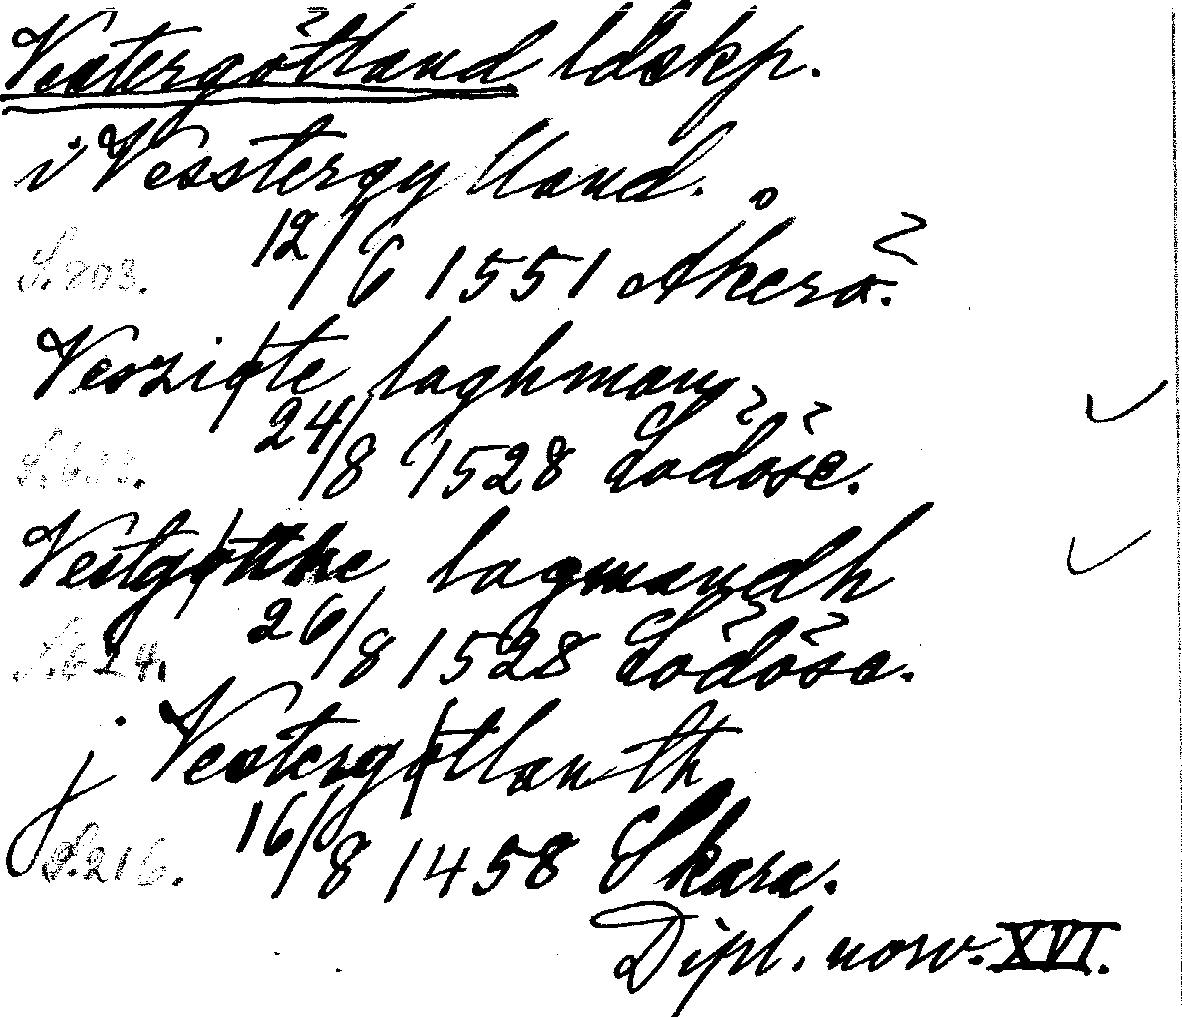 Västergötland ldskp.
i Vesstergylland.
S. 803. 12/6 1551 Åkerö.
Veszigøte laghman
S. 623. 24/8 1528 Lödöse.
Vestgøtthe lagmandh
S. 624. 26/8 1528 Lödöse.
j Vestergøtlanth
S. 216. 16/8 1458 Skara.
Dipl. norv. XVI.